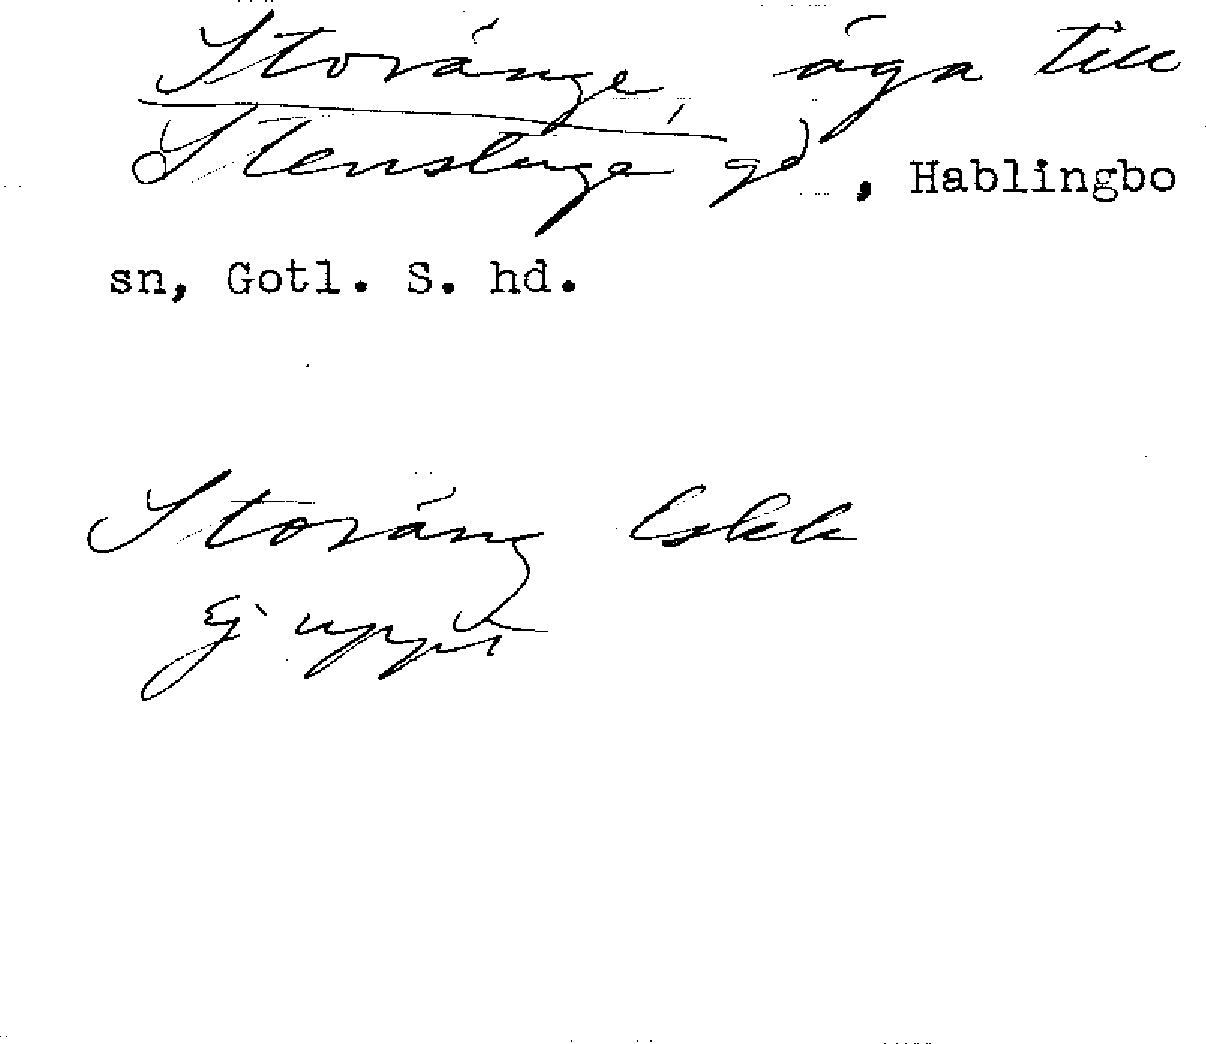 Storänge, äga till
Stenstuge gd, Hablingbo
sn, Gotl. S. hd.
Storäng Eskk
Ej uppt